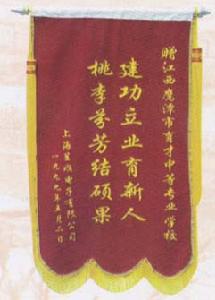 赠江西鹰潭市育才中等专业学校
建功立业育新人
桃李芬芳结硕果
上海 电子有限公司
一九九九年五月二日